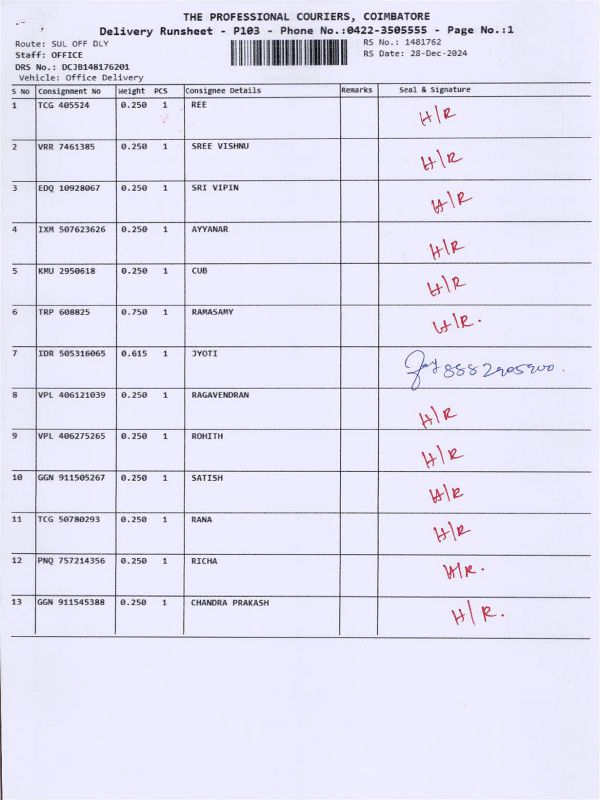 THE PROFESSIONAL COURIERS, COIMBATORE
Delivery Runsheet - P103 - Phone No.:0422-3505555 - Page No.:1
Route: SUL OFF DLY RS No.: 1481762
Staff: OFFICE RS Date: 28-Dec-2024
DRS No.: DCJB148176201
Vehicle: Office Delivery
S No Consignment No Weight PCS Consignee Details Remarks Seal & Signature
1 TCG 405524 0.250 1 REE H/R
2 VRR 7461385 0.250 1 SREE VISHNU H/R
3 EDQ 10928067 0.250 1 SRI VIPIN H/R
4 IXM 507623626 0.250 1 AYYANAR H/R
5 KMU 2950618 0.250 1 CUB H/R
6 TRP 608825 0.750 1 RAMASAMY H/R.
7 IDR 505316065 0.615 1 JYOTI
8 VPL 406121039 0.250 1 RAGAVENDRAN H/R
9 VPL 406275265 0.250 1 ROHITH H/R
10 GGN 911505267 0.250 1 SATISH H/R
11 TCG 50780293 0.250 1 RANA H/R
12 PNQ 757214356 0.250 1 RICHA H/R.
13 GGN 911545388 0.250 1 CHANDRA PRAKASH H/R.